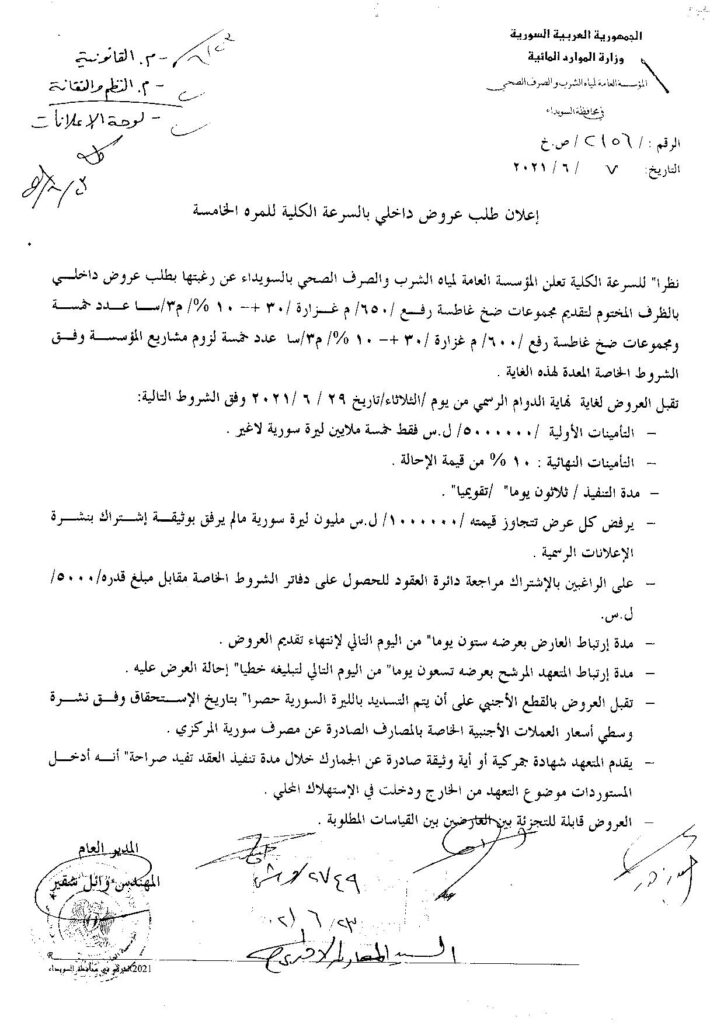 الجمهورية العربية السورية
وزارة الموارد المائية
المؤسسة العامة لمياه الشرب والصرف الصحي
في محافظة السويداء
الرقم : /٢١٥٦/ ص.خ
التاريخ: ٧ / ٦ / ٢٠٢١
- م. القانونية
- م. النظم والتقانة
- لوحة الإعلانات
إعلان طلب عروض داخلي بالسرعة الكلية للمره الخامسة
نظرا" للسرعة الكلية تعلن المؤسسة العامة لمياه الشرب والصرف الصحي بالسويداء عن رغبتها بطلب عروض داخلـي
بالظرف المختوم لتقديم مجموعات ضخ غاطسة رفـع /٦٥٠/ م غـزارة /٣٠ +– ١٠ %/ م٣/سـا عـدد خمـسة
ومجموعات ضخ غاطسة رفع /٦٠٠/ م غزارة /٣٠ +– ١٠ %/ م٣/سا عدد خمسة لزوم مشاريع المؤسسة وفـق
الشروط الخاصة المعدة لهذه الغاية .
تقبل العروض لغاية نهاية الدوام الرسمي من يوم /الثلاثاء/تاريخ ٢٩ / ٦ / ٢٠٢١ وفق الشروط التالية:
– التأمينات الأولية /٥٠٠٠٠٠٠/ ل.س فقط خمسة ملايين ليرة سورية لاغير .
– التأمينات النهائية : ١٠ % من قيمة الإحالة .
– مدة التنفيذ / ثلاثون يوما" /تقويميا" .
– يرفض كل عرض تتجاوز قيمته /١٠٠٠٠٠٠/ ل.س مليون ليرة سورية مالم يرفق بوثيقـة إشتراك بنشـرة
الإعلانات الرسمية .
– على الراغبين بالإشتراك مراجعة دائرة العقود للحصول على دفاتر الشروط الخاصة مقابل مبلغ قدره/٥٠٠٠/
ل.س.
– مدة إرتباط العارض بعرضه ستون يوما" من اليوم التالي لإنتهاء تقديم العروض .
– مدة إرتباط المتعهد المرشح بعرضه تسعون يوما" من اليوم التالي لتبليغه خطيا" إحالة العرض عليه .
– تقبل العروض بالقطع الأجنبي على أن يتم التسديد بالليرة السورية حصرا" بتاريخ الإستـحقاق وفـق نشرة
وسطي أسعار العملات الأجنبية الخاصة بالمصارف الصادرة عن مصرف سورية المركزي .
– يقدم المتعهد شهادة جمركية أو أية وثيقة صادرة عن الجمارك خلال مدة تنفيذ العقد تفيد صراحة" أنـه أدخـل
المستوردات موضوع التعهد من الخارج ودخلت في الإستهلاك المحلي .
– العروض قابلة للتجزئة بين العارضين بين القياسات المطلوبة .
المدير العام
المهندس وائل شقير
٢٧٤٩